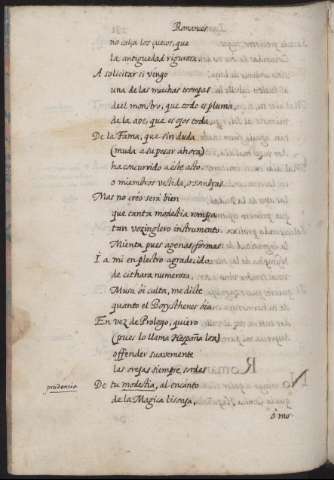 Romances
no calça los cueros, que
la antiguedad rigurosa.
A solicitar si vengo
una de las muchas trompas
del monstro, que todo es pluma,
de la ave, que es ojos toda
De la Fama, que sin duda
(muda a su pesar ahora)
ha concurrido a este acto
o miembros vestida, o sombras
Mas no creo será bien
que tanta modestia rompa
tan vozinglero instrumento.
Mienta pues agenas formas
I a mi en plectro agradecido
de cithara numerosa,
Musa si culta, me dicte
quanto el Borysthenes oia
En vez de Prologo, quiero
(pues lo llama Hespaña loa)
offender suavemente
las orejas siempre sordas
prudencia
De tu modestia, al encanto
de la Magica lisonja,
ô mo